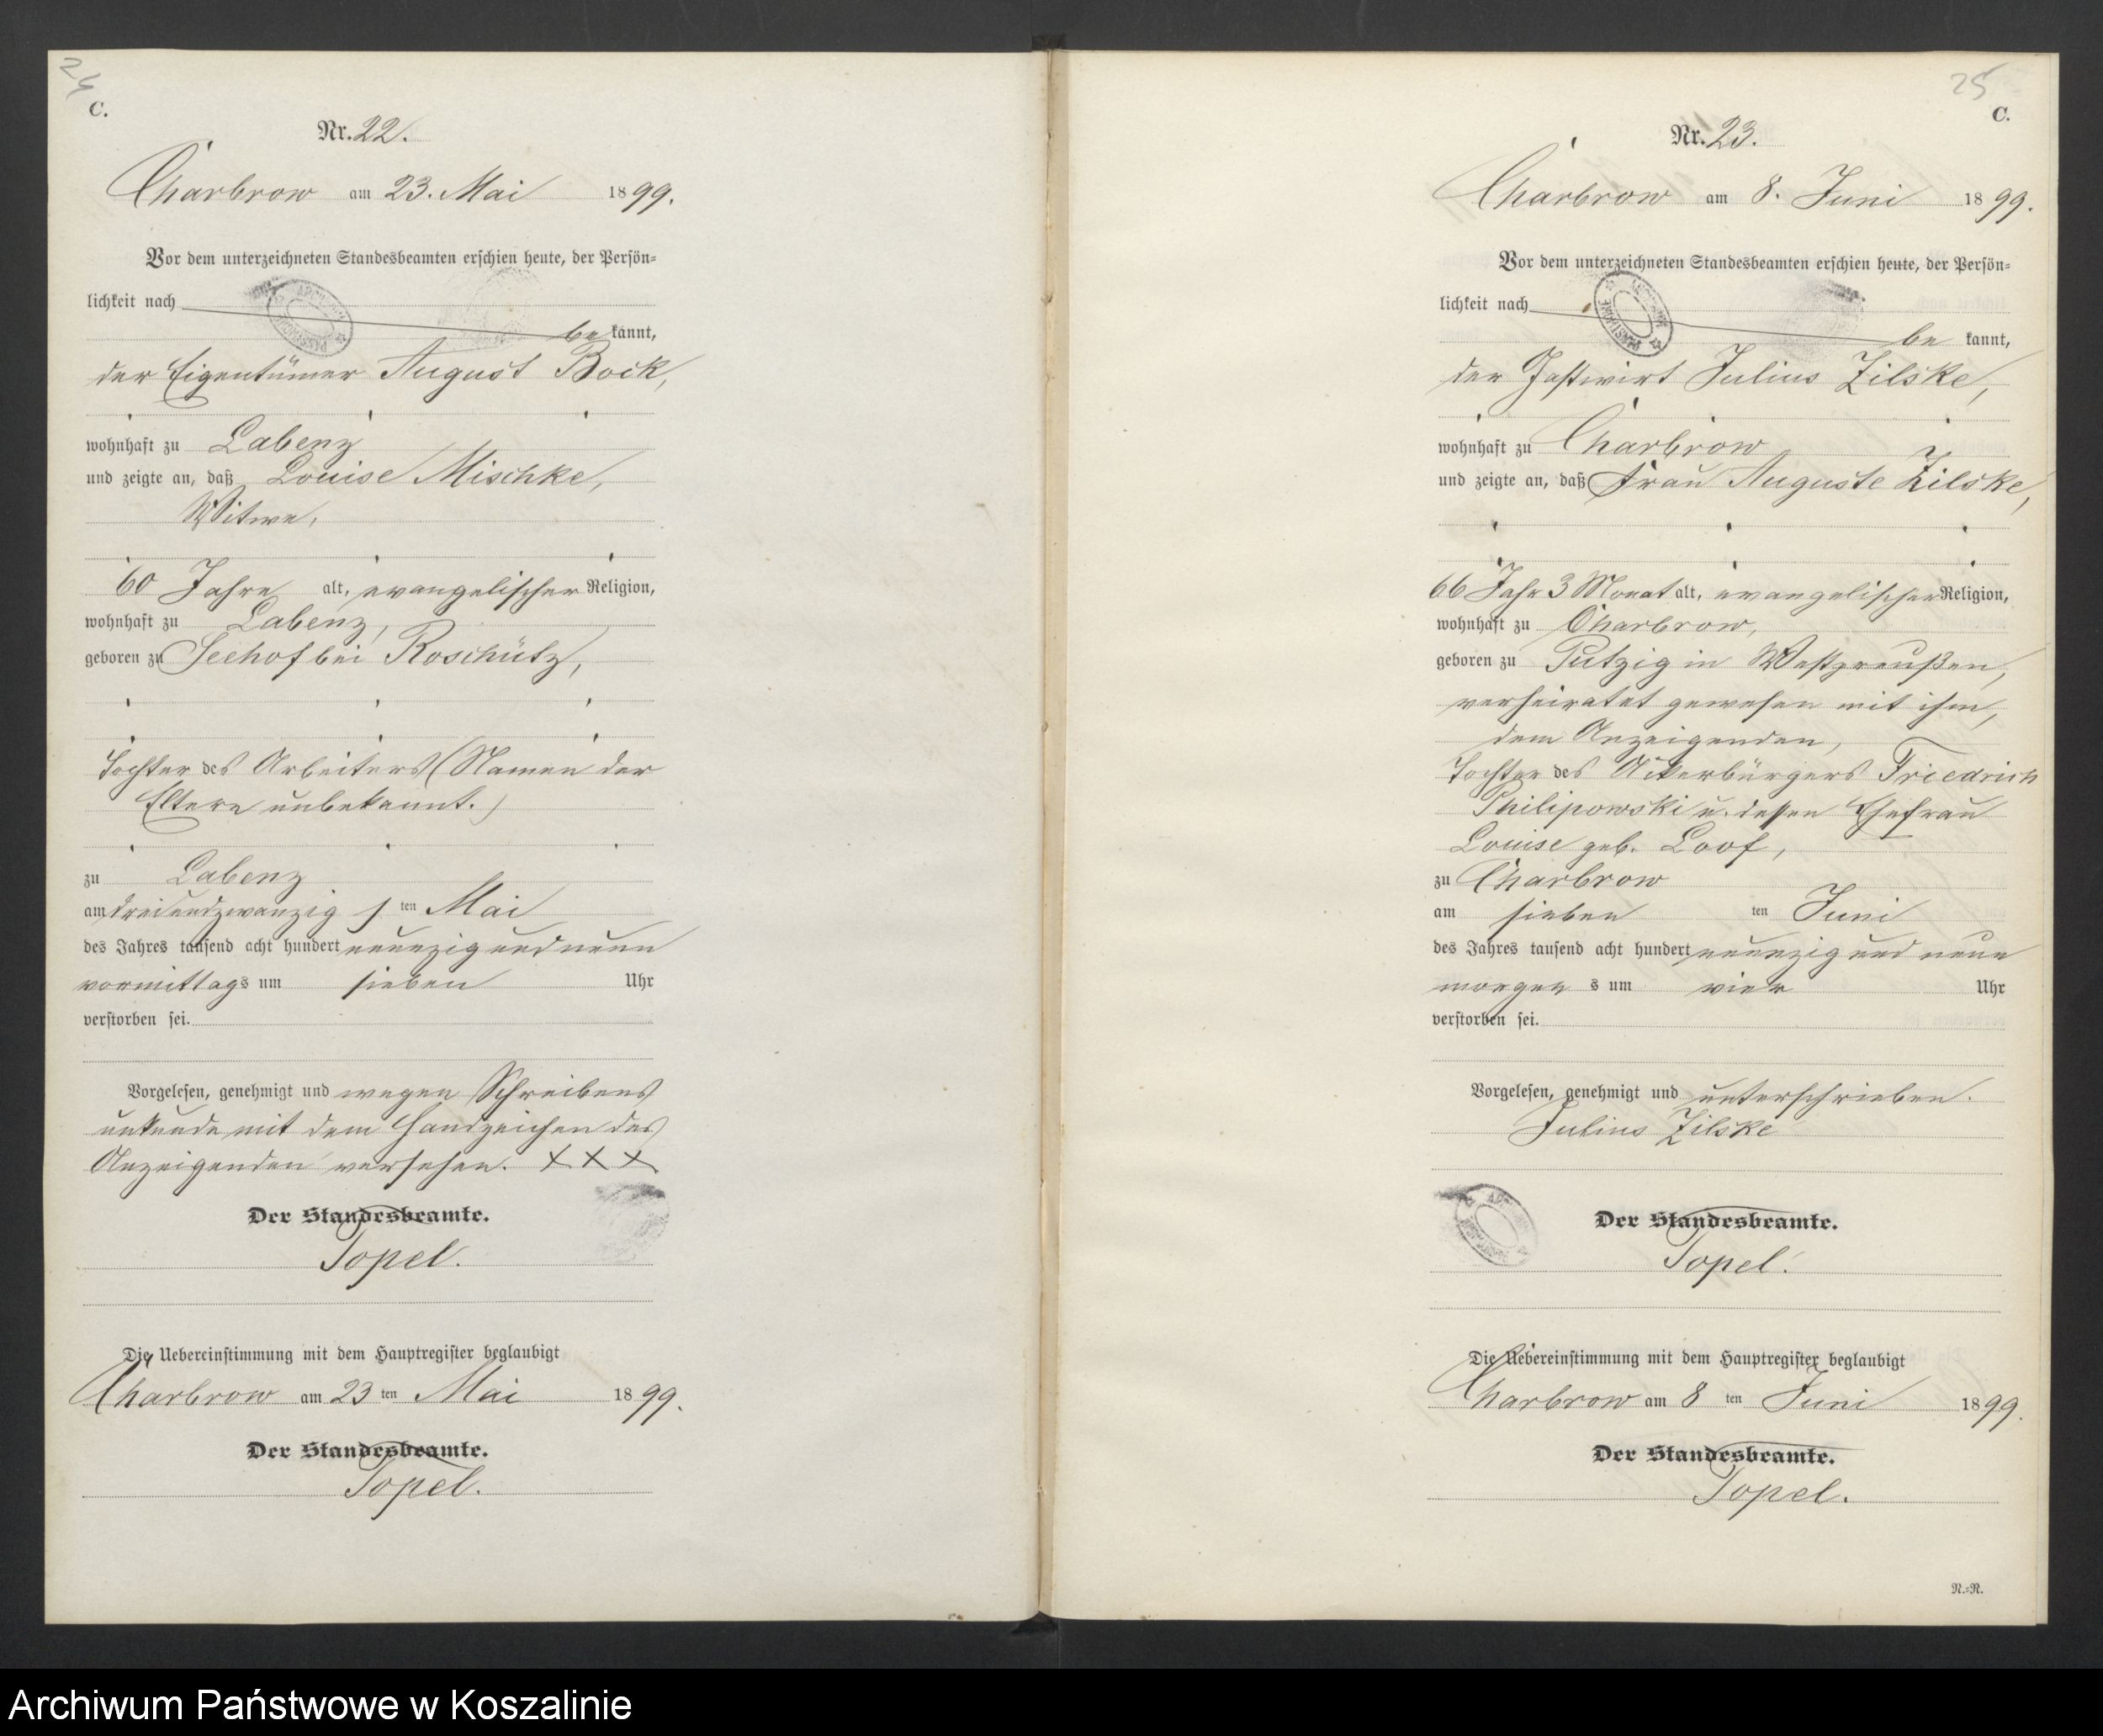 24
C.
Nr. 22.
Charbrow am 23. Mai 1899.
Vor dem unterzeichneten Standesbeamten erschien heute, der Persön-
lichkeit nach
be kannt,
der Eigentümer August Bock,
wohnhaft zu Labenz
und zeigte an, daß Louise Mischke,
Witwe,
60 Jahre alt, evangelischer Religion,
wohnhaft zu Labenz,
geboren zu Seehof bei Roschütz,
Tochter des Arbeiters (Namen der
Eltern unbekannt.)
zu Labenz
am dreiundzwanzig ten Mai
des Jahres tausend acht hundert neunzig und neun
vormittags um sieben Uhr
verstorben sei.
Vorgelesen, genehmigt und wegen Schreibens
unkunde mit dem Handzeichen des
Anzeigenden versehen. XXX
Der Standesbeamte.
Topel.
Die Uebereinstimmung mit dem Hauptregister beglaubigt
Charbrow am 23 ten Mai 1899.
Der Standesbeamte.
Topel.
25
C.
Nr. 23.
Charbrow am 8. Juni 1899.
Vor dem unterzeichneten Standesbeamten erschien heute, der Persön-
lichkeit nach
be kannt,
der Gastwirt Julius Zilske,
wohnhaft zu Charbrow
und zeigte an, daß Frau Auguste Zilske,
66 Jahr 3 Monat alt, evangelischer Religion,
wohnhaft zu Charbrow,
geboren zu Putzig in Westpreußen,
verheiratet gewesen mit ihm,
dem Anzeigenden,
Tochter des Ackerbürgers Friedrich
Philipowski u. dessen Ehefrau
Louise geb. Loof,
zu Charbrow
am sieben ten Juni
des Jahres tausend acht hundert neunzig und neun
morgen s um vier Uhr
verstorben sei.
Vorgelesen, genehmigt und unterschrieben.
Julius Zilske
Der Standesbeamte.
Topel.
Die Uebereinstimmung mit dem Hauptregister beglaubigt
Charbrow am 8 ten Juni 1899.
Der Standesbeamte.
Topel.
N.=R.
Archiwum Państwowe w Koszalinie